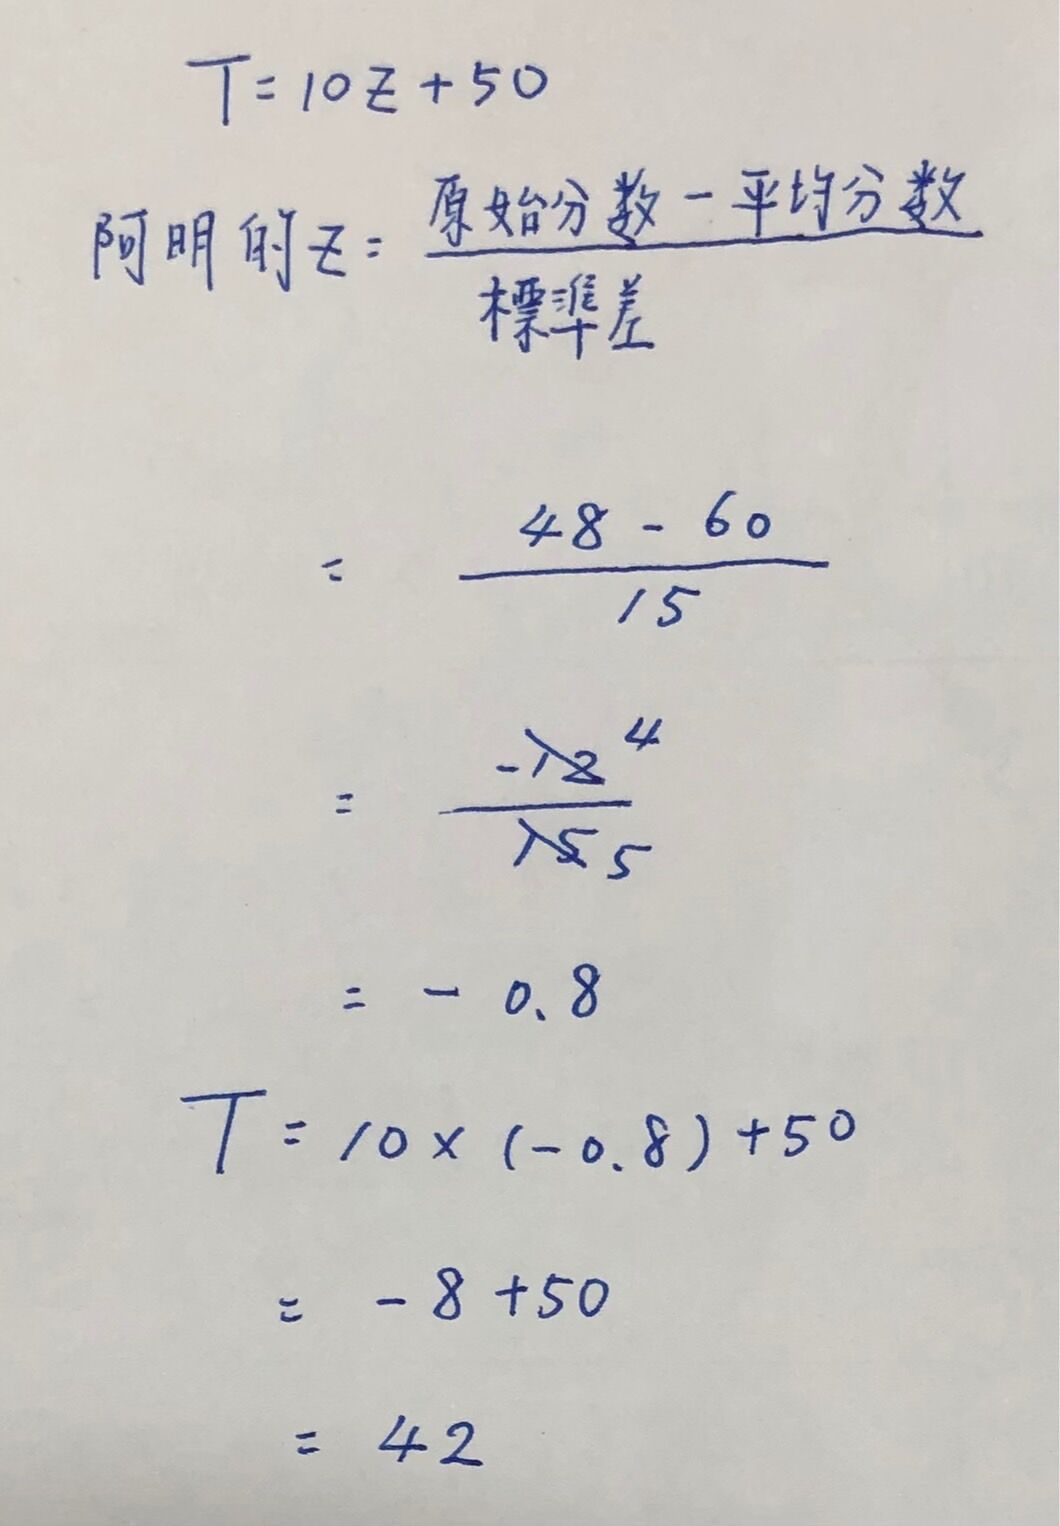 T=10Z+50
阿明的Z=原始分数-平均分数
標準差
= 48-60
15
= -12 4
15 5
= -0.8
T=10×(-0.8)+50
= -8+50
= 42